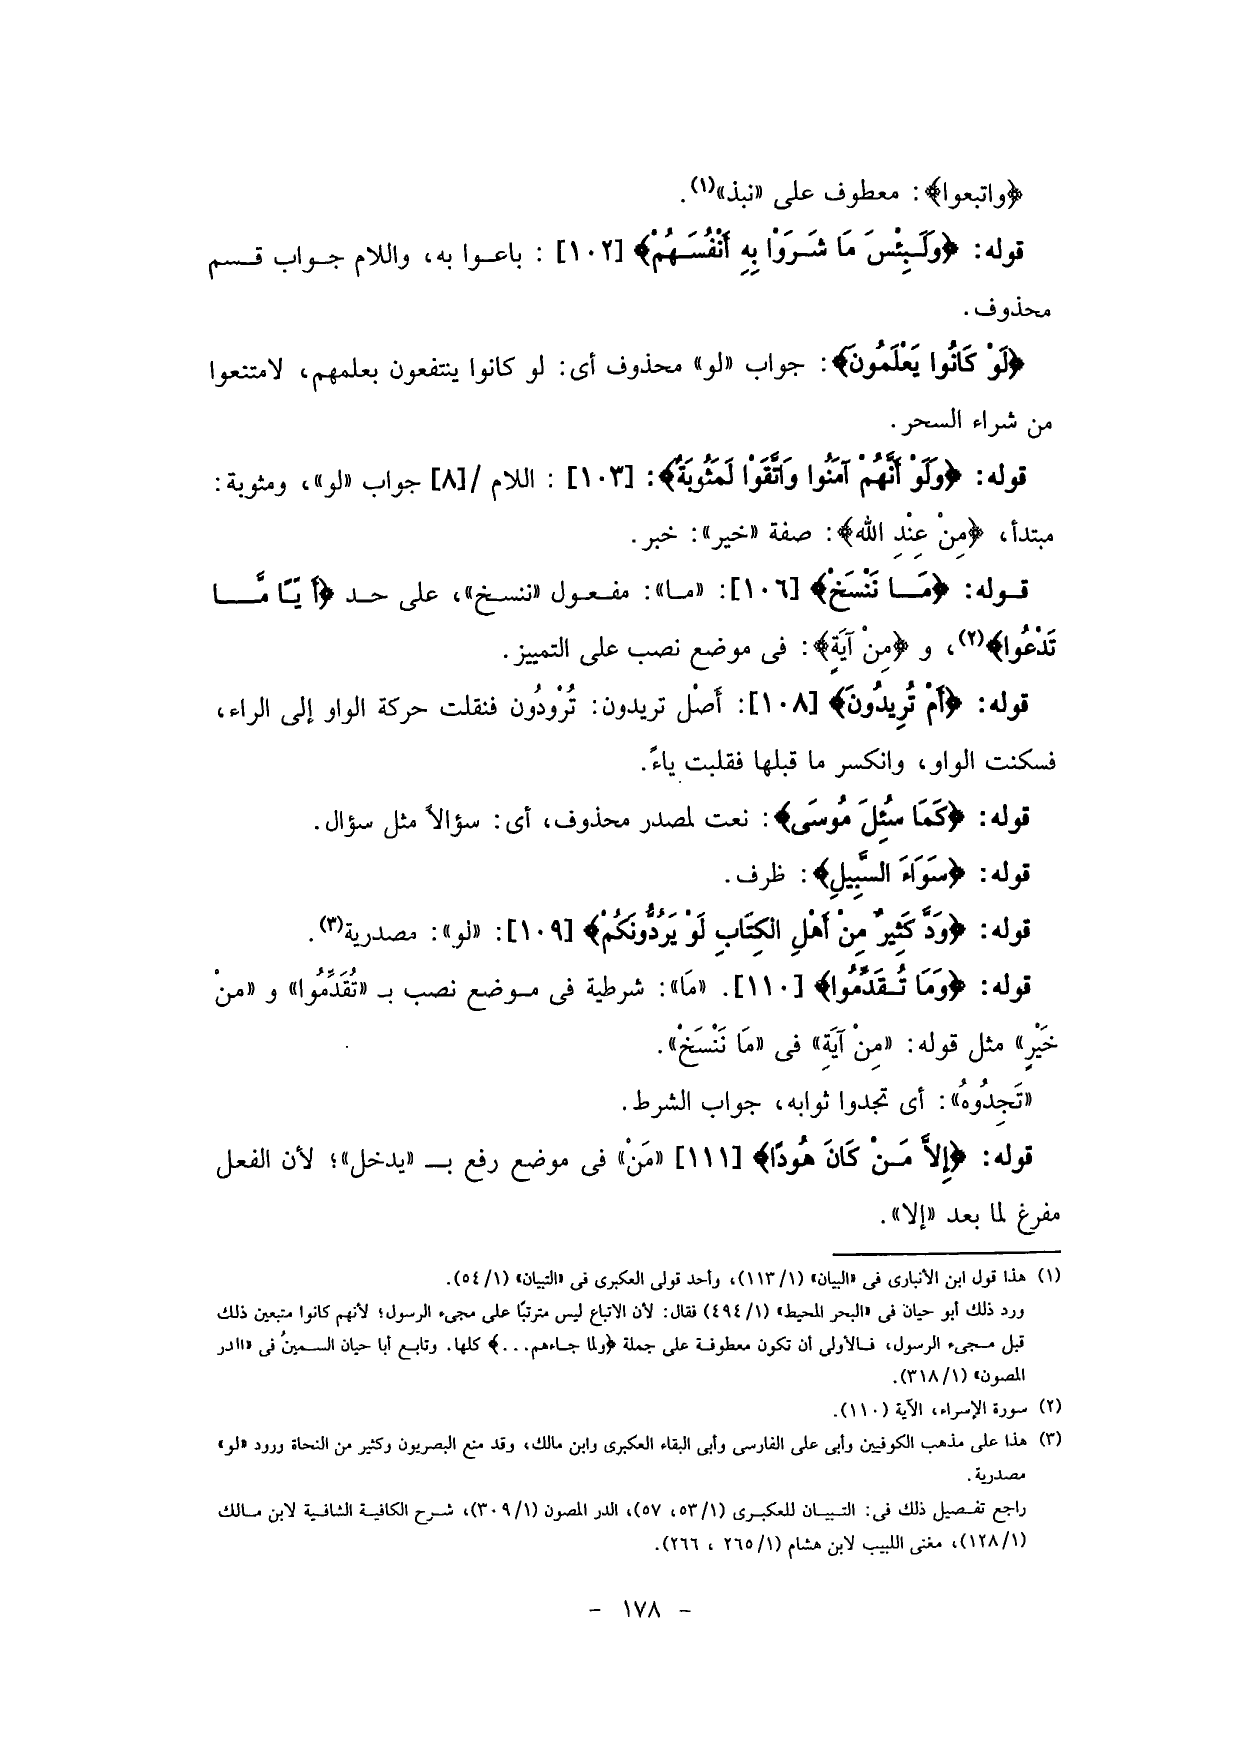 ﴿واتبعوا﴾: معطوف على «نبذ»(١).
قوله: ﴿وَلَبِئْسَ مَا شَرَوْا بِهِ أَنْفُسَهُمْ﴾ [١٠٢] : باعوا به، واللام جواب قسم
محذوف.
﴿لَوْ كَانُوا يَعْلَمُونَ﴾: جواب «لو» محذوف أى: لو كانوا ينتفعون بعلمهم، لامتنعوا
من شراء السحر.
قوله: ﴿وَلَوْ أَنَّهُمْ آمَنُوا وَاتَّقَوْا لَمَثُوبَةٌ﴾: [١٠٣] : اللام /[٨] جواب «لو»، ومثوبة:
مبتدأ، ﴿مِنْ عِنْدِ الله﴾: صفة «خير»: خبر.
قوله: ﴿مَا نَنْسَخْ﴾ [١٠٦]: «ما»: مفعول «ننسخ»، على حد ﴿أَيًّا مَّا
تَدْعُوا﴾(٢)، و ﴿مِنْ آيَةٍ﴾: فى موضع نصب على التمييز.
قوله: ﴿أَمْ تُرِيدُونَ﴾ [١٠٨]: أَصْل تريدون: تُرْوِدُون فنقلت حركة الواو إلى الراء،
فسكنت الواو، وانكسر ما قبلها فقلبت ياءً.
قوله: ﴿كَمَا سُئِلَ مُوسَى﴾: نعت لمصدر محذوف، أى: سؤالاً مثل سؤال.
قوله: ﴿سَوَاءَ السَّبِيلِ﴾: ظرف.
قوله: ﴿وَدَّ كَثِيرٌ مِنْ أَهْلِ الكِتَابِ لَوْ يَرُدُّونَكُمْ﴾ [١٠٩]: «لو»: مصدرية(٣).
قوله: ﴿وَمَا تُقَدِّمُوا﴾ [١١٠]. «مَا»: شرطية فى موضع نصب بـ «تُقَدِّمُوا» و «منْ
خَيْرٍ» مثل قوله: «مِنْ آيَةِ» فى «مَا نَنْسَخْ».
«تَجِدُوهُ»: أى تجدوا ثوابه، جواب الشرط.
قوله: ﴿إِلاَّ مَنْ كَانَ هُودًا﴾ [١١١] «مَنْ» فى موضع رفع بـ «يدخل»؛ لأن الفعل
مفرغ لما بعد «إلا».
(١) هذا قول ابن الأنبارى فى «البيان» (١/ ١١٣)، وأحد قولى العكبرى فى «التبيان» (١/ ٥٤).
ورد ذلك أبو حيان فى «البحر المحيط» (١/ ٤٩٤) فقال: لأن الاتباع ليس مترتبًا على مجىء الرسول؛ لأنهم كانوا متبعين ذلك
قبل مجىء الرسول، فالأولى أن تكون معطوفة على جملة ﴿ولما جاءهم...﴾ كلها. وتابع أبا حيان السمينُ فى «الدر
المصون» (١/ ٣١٨).
(٢) سورة الإسراء، الآية (١١٠).
(٣) هذا على مذهب الكوفيين وأبى على الفارسى وأبى البقاء العكبرى وابن مالك، وقد منع البصريون وكثير من النحاة ورود «لو»
مصدرية.
راجع تفصيل ذلك فى: التبيان للعكبرى (١/ ٥٣، ٥٧)، الدر المصون (١/ ٣٠٩)، شرح الكافية الشافية لابن مالك
(١/ ١٢٨)، مغنى اللبيب لابن هشام (١/ ٢٦٥ ، ٢٦٦).
- ١٧٨ -